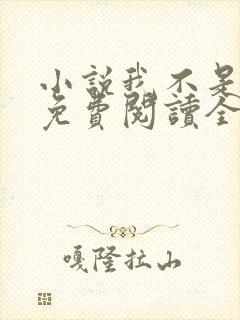 小說我不是
免費閱讀全
嘎隆拉山